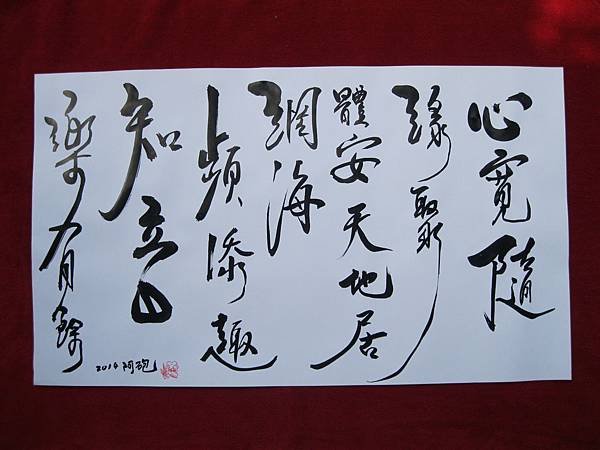 心寬隨
緣聚
體安天地居
網海
頻添趣
知音
樂有餘
2014 阿砲